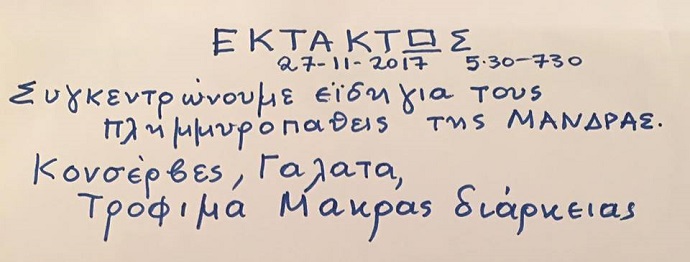 ΕΚΤΑΚΤΟΣ
27-11-2017 5.30-730
Συγκεντρώνουμε είδη για τους
πλημμυροπαθεις της ΜΑΝΔΡΑΣ.
Κονσέρβες, Γαλατα,
Τροφιμα Μακράς διάρκειας